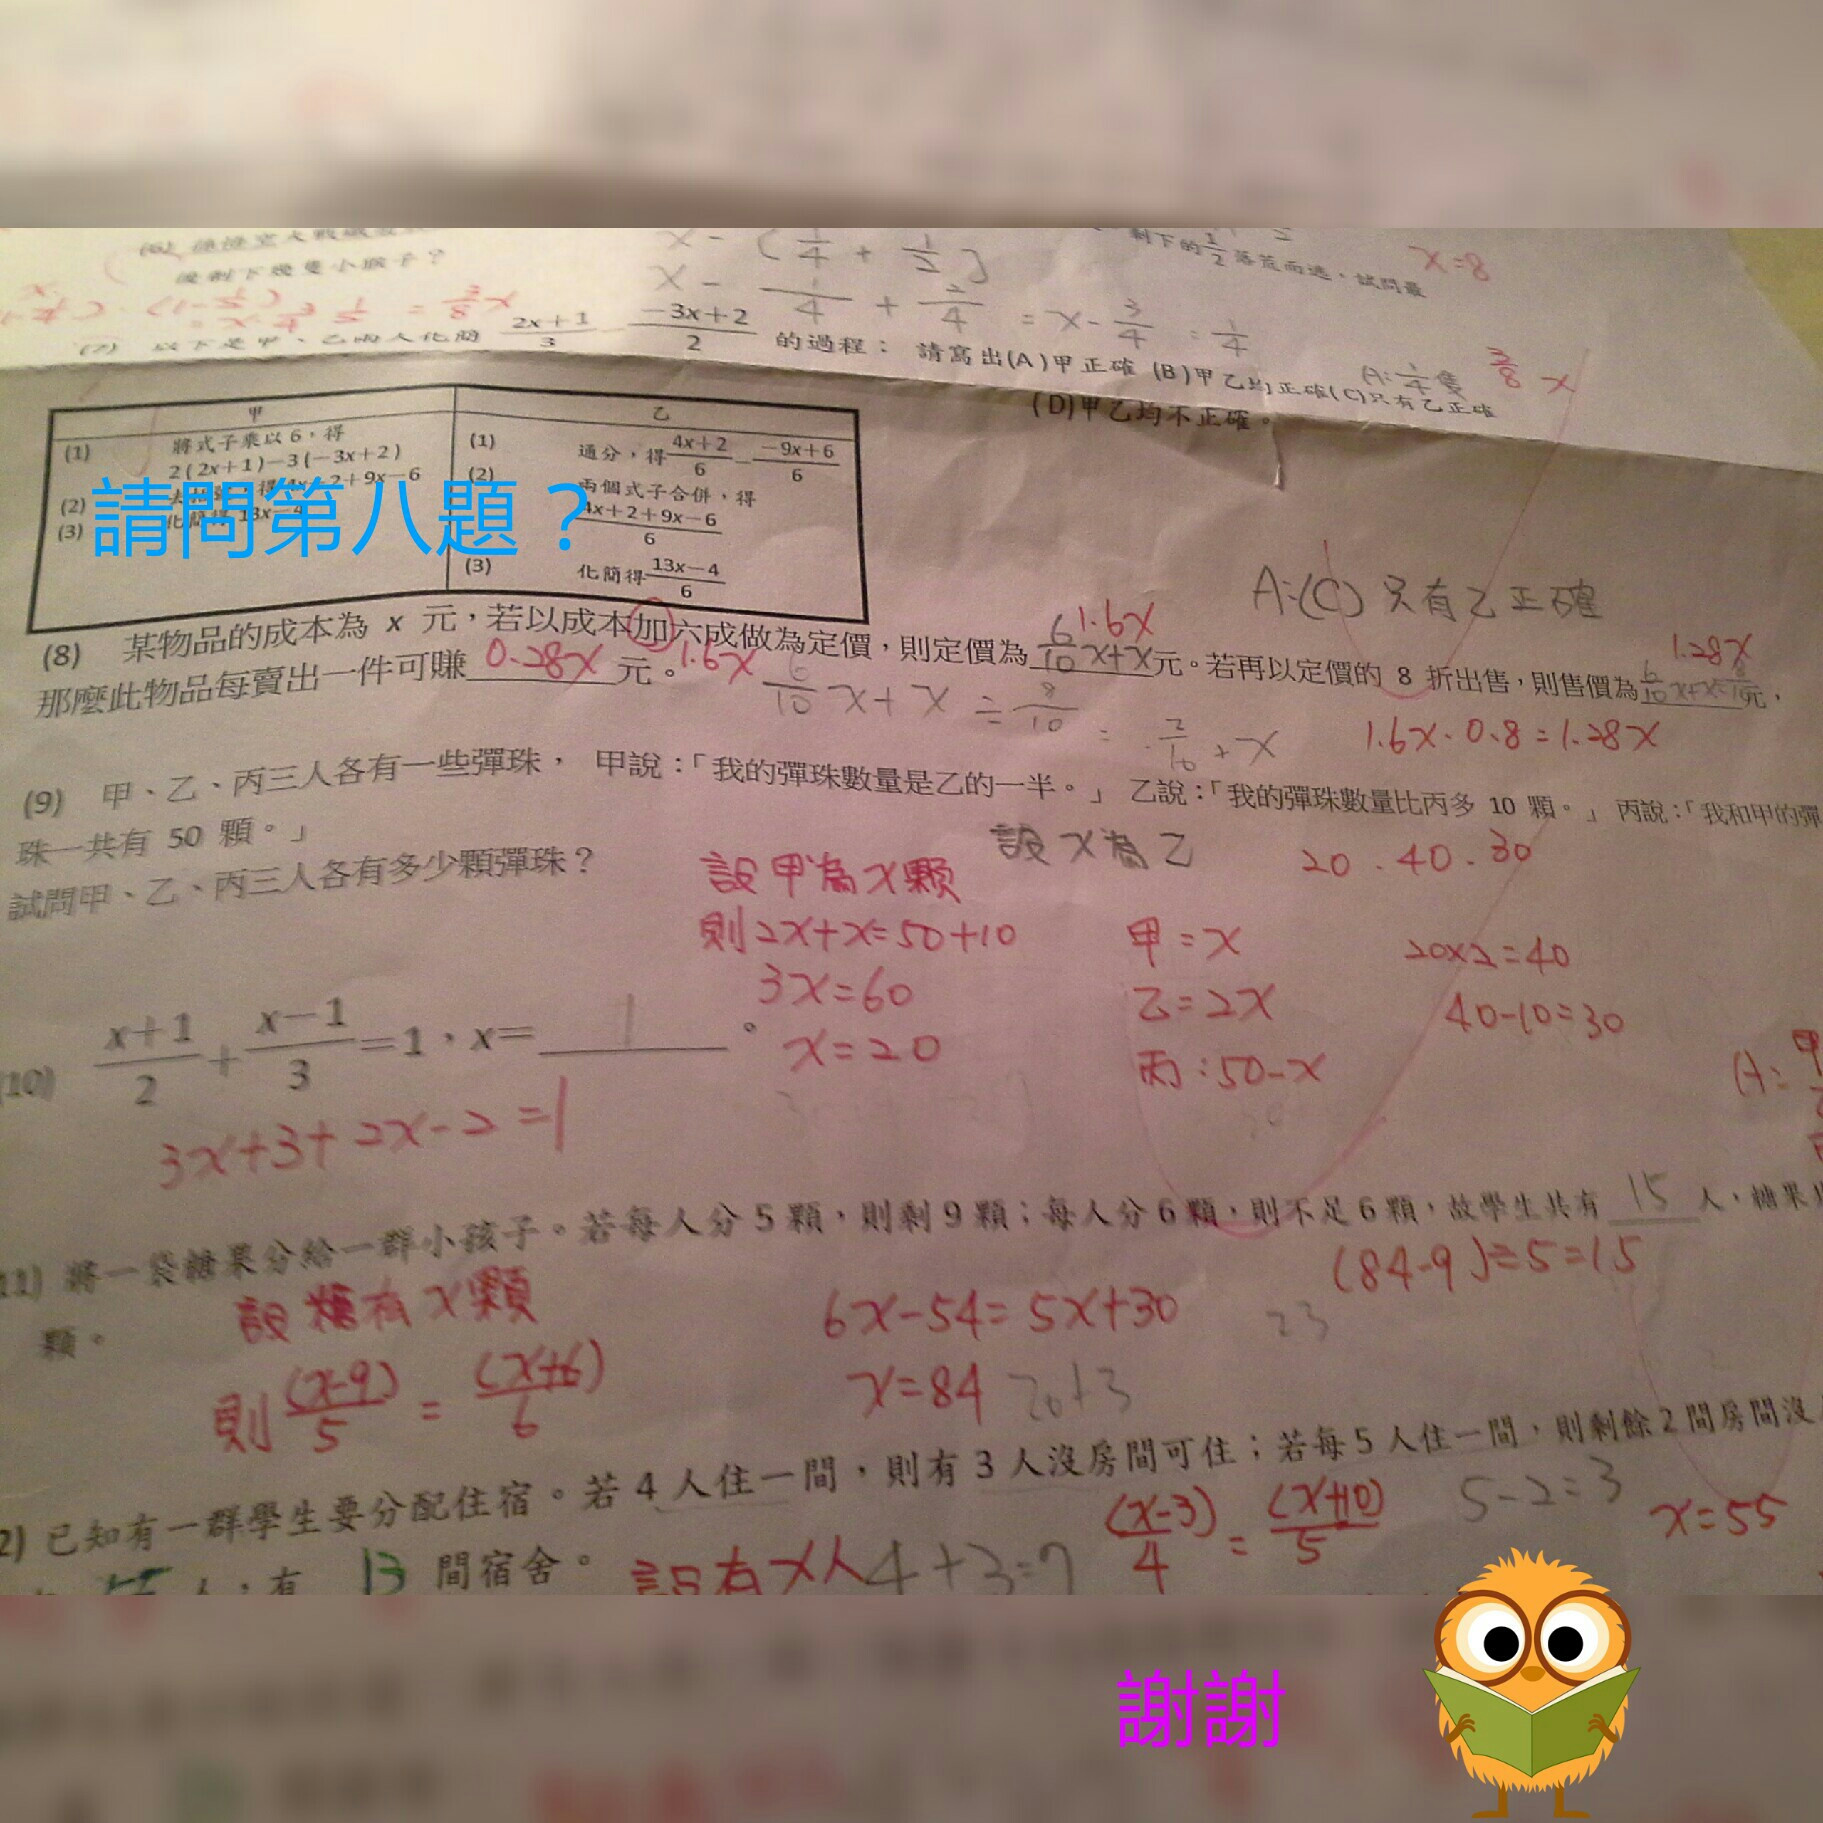 後剩下幾隻小猴子？
剩下的1/2落荒而逃，試問最
x=8
x-(1/4+1/2)
x-1/4+2/4=x-3/4=1/4
(7) 以下是甲、乙兩人化簡 (2x+1)/3-(-3x+2)/2 的過程： 請寫出(A)甲正確 (B)甲乙均正確(C)只有乙正確
(D)甲乙均不正確。
A:1/4隻
3/8 x
甲
(1) 將式子乘以6，得
2(2x+1)-3(-3x+2)
(2)
(3)
乙
(1) 通分，得(4x+2)/6-(-9x+6)/6
(2) 兩個式子合併，得
(4x+2+9x-6)/6
(3) 化簡得(13x-4)/6
請問第八題？
A:(C) 只有乙正確
(8) 某物品的成本為 x 元，若以成本加六成做為定價，則定價為6/10x+x元。若再以定價的 8 折出售，則售價為元，
1.6x
1.28x
那麼此物品每賣出一件可賺0.28x元。
1.6x
6/10x+x÷8/10
=2/10+x
1.6x·0.8=1.28x
(9) 甲、乙、丙三人各有一些彈珠， 甲說：「我的彈珠數量是乙的一半。」 乙說：「我的彈珠數量比丙多 10 顆。」 丙說：「我和甲的彈
珠一共有 50 顆。」
試問甲、乙、丙三人各有多少顆彈珠？
設x為乙
20.40.30
設甲為x顆
則2x+x=50+10
3x=60
x=20
甲=x
乙=2x
丙:50-x
20x2=40
40-10=30
(10) (x+1)/2+(x-1)/3=1，x=1。
3x+3+2x-2=1
11) 將一袋糖果分給一群小孩子。若每人分5顆，則剩9顆；每人分6顆，則不足6顆，故學生共有15人，糖果共
顆。
(84-9)÷5=15
設糖有x顆
則(x-9)/5=(x+6)/6
6x-54=5x+30
x=84
23
20+3
2) 已知有一群學生要分配住宿。若4人住一間，則有3人沒房間可住；若每5人住一間，則剩餘2間房間沒
人，有13間宿舍。
設有x人
4+3=7
(x-3)/4=(x+10)/5
5-2=3
x=55
謝謝